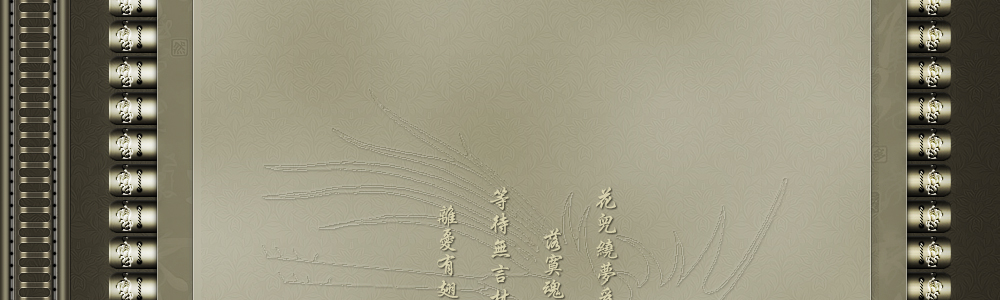 花兒繞夢
落寞魂
等待無言
離愛有翅